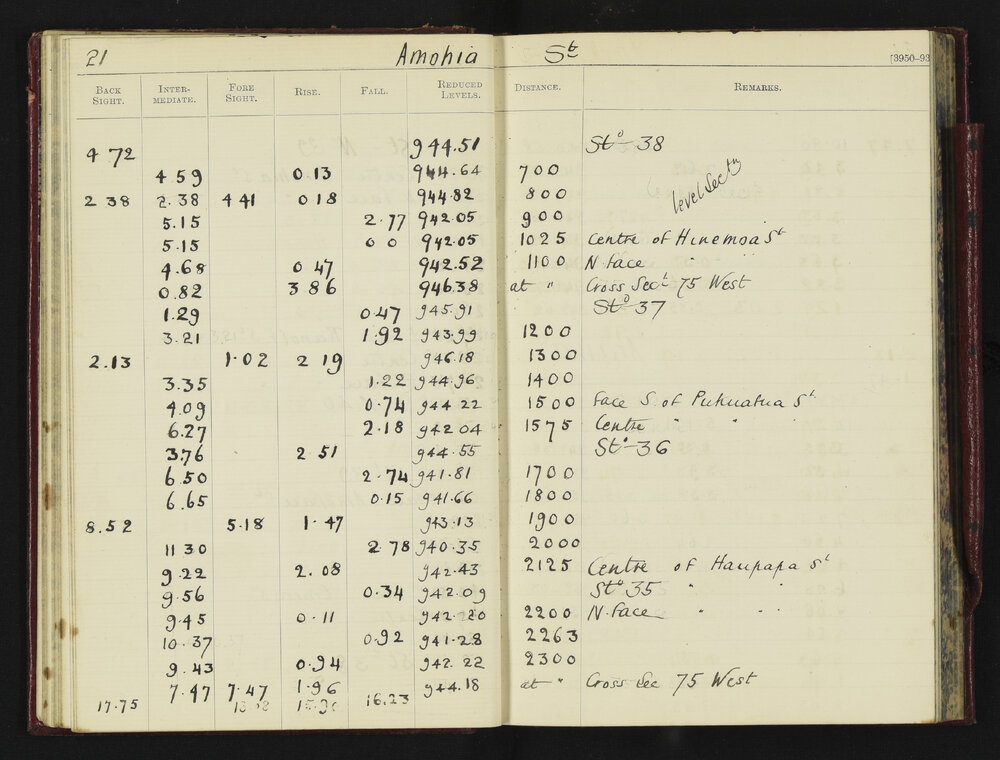 21 Amohia St [3950-93
BACK SIGHT. INTER-MEDIATE. FORE SIGHT. RISE. FALL. REDUCED LEVELS. DISTANCE. REMARKS.
4 72 944.51 Sto 38
4 59 0.13 944.64 700
2 38 2.38 4 41 0 18 944.82 800 level Sectn
5.15 2.77 942.05 900
5.15 0 0 942.05 1025 Centre of Hinemoa St
4.68 0 47 942.52 1100 N. Face "
0.82 3.86 946.38 at " Cross Sect 75 West
1.29 0.47 945.91 Sto 37
3.21 1.92 943.99 1200
2.13 1.02 2 19 946.18 1300
3.35 1.22 944.96 1400
4.09 0.74 944 22 1500 Face S. of Pukuatua St
6.27 2.18 942 04 1575 Centre " "
3.76 2 51 944.55 Sto 36
6.50 2.74 941.81 1700
6.65 0.15 941.66 1800
8.52 5.18 1.47 943.13 1900
11 30 2 78 940.35 2000
9.22 2.08 942.43 2125 Centre of Haupapa St
9.56 0.34 942.09 Sto 35 " "
9.45 0.11 942.20 2200 N. Face " "
10.37 0.92 941.28 2263
9.43 0.94 942.22 2300
7.47 7.47 1.96 944.18 at " Cross Sec 75 West
17.75 16.23